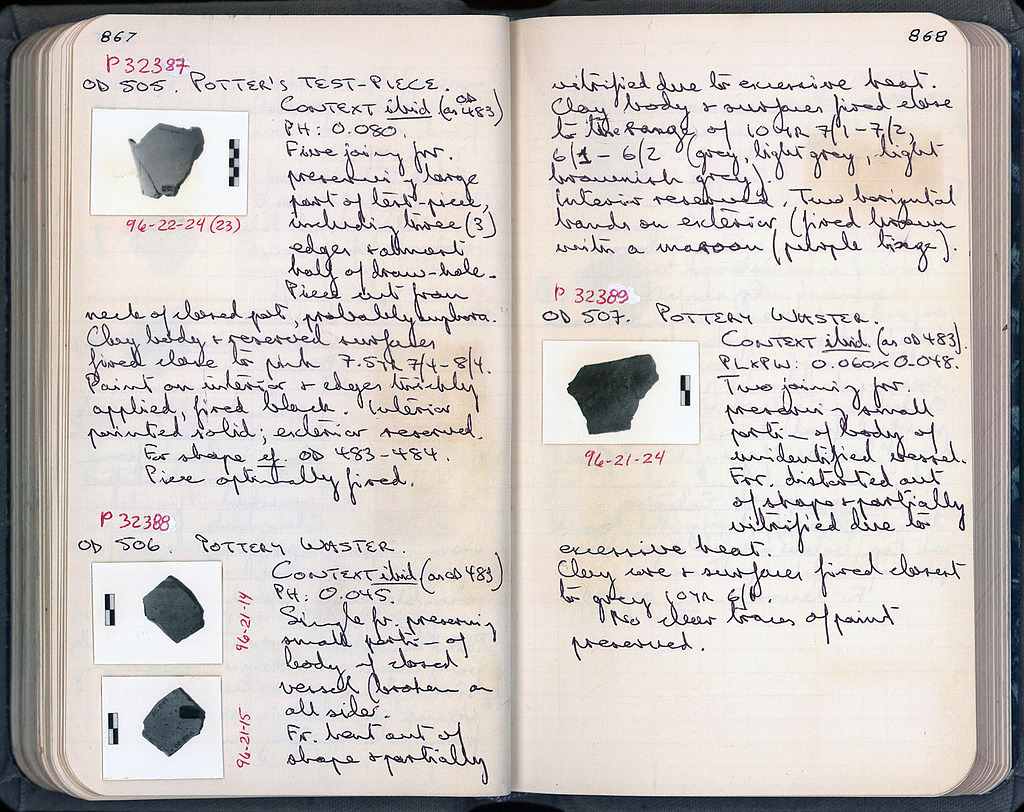 867
P 32387
OD 505. POTTER'S TEST-PIECE.
CONTEXT ibid (as OD 483)
PH: 0.080.
Five joining frr.
preserving large
part of test-piece,
including three (3)
edges + almost
half of draw-hole.
Piece cut from
neck of closed pot, probably amphora.
Clay body + reserved surfaces
fired close to pink 7.5YR 7/4-8/4.
Paint on interior + edges thickly
applied, fired black. Interior
painted solid; exterior reserved.
For shape cf. OD 483-484.
Piece optimally fired.
96-22-24 (23)
P 32388
OD 506. POTTERY WASTER.
CONTEXT ibid (as OD 483)
PH: 0.045.
Single fr. preserving
small porti— of
body of closed
vessel (broken on
all sides.
Fr. bent out of
shape + partially
96-21-14
96-21-15
868
vitrified due to excessive heat.
Clay body + surfaces fired close
to the range of 10YR 7/1-7/2,
6/1-6/2 (grey, light grey, light
brownish grey).
Interior reserved. Two horizontal
bands on exterior (fired brown
with a maroon/purple tinge).
P 32389
OD 507. POTTERY WASTER.
CONTEXT ibid. (as OD 483).
PLxPW: 0.060x0.048.
Two joining frr.
preserving small
porti— of body of
unidentified vessel.
Frr. distorted out
of shape + partially
vitrified due to
excessive heat.
Clay core + surfaces fired closest
to grey 10YR 6/1.
No clear traces of paint
preserved.
96-21-24